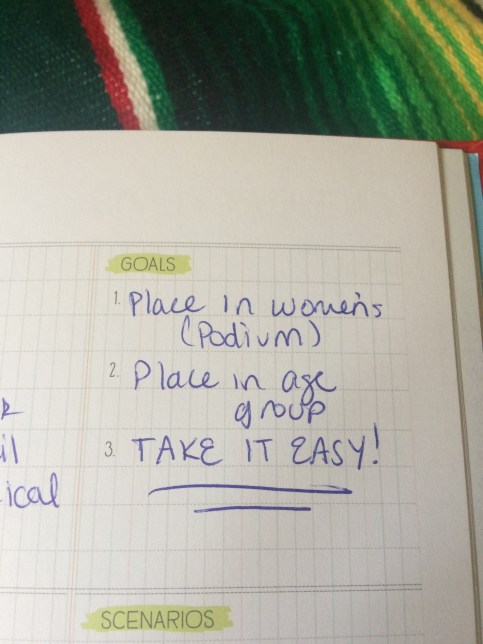 GOALS
1. Place in women's
(Podium)
2. Place in age
group
3. TAKE IT EASY!
ical
SCENARIOS